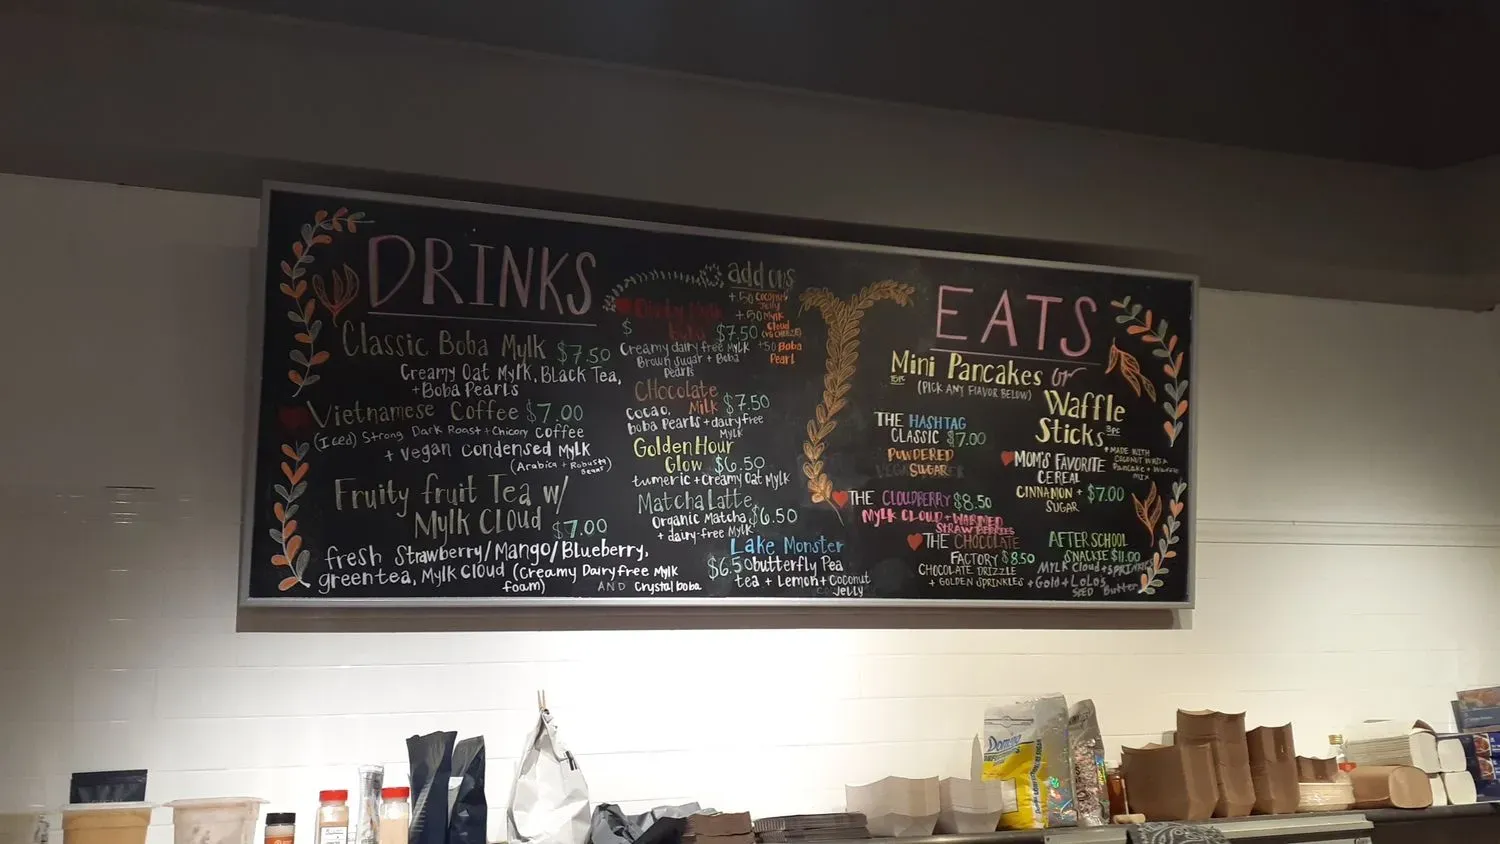 DRINKS
Classic Boba Mylk $7.50
Creamy Oat Mylk, Black Tea,
+Boba Pearls
Vietnamese Coffee $7.00
(Iced) Strong Dark Roast + Chicory Coffee
+ vegan condensed Mylk
(Arabica + Robusta
Fruity fruit Tea w/
Mylk Cloud $7.00
fresh Strawberry/Mango/Blueberry,
green tea, Mylk Cloud (Creamy Dairy free Mylk
foam) AND Crystal boba
Mylk
$ Boba $7.50
Creamy dairy free Mylk
Brown sugar + Boba
Pearls
Chocolate
Milk $7.50
Cocao,
boba Pearls + dairy free
Mylk
Golden Hour
Glow $6.50
tumeric + Creamy Oat Mylk
Matcha Latte
Organic Matcha $6.50
+ dairy-free Mylk
Lake Monster
$6.50 butterfly Pea
tea + Lemon + Coconut
Jelly
add ons
+.50 Coconut
Jelly
+.50 Mylk
Cloud
+.50 Boba
Pearl
EATS
Mini Pancakes or
(PICK ANY FLAVOR BELOW)
Waffle
Sticks 3pc
* MADE WITH
Pancake + Waffle
MIX
THE HASHTAG
CLASSIC $7.00
POWDERED
SUGAR
THE CLOUDBERRY $8.50
MYLK CLOUD + WARMED
STRAWBERRIES
THE CHOCOLATE
FACTORY $8.50
CHOCOLATE DRIZZLE
+ GOLDEN SPRINKLES
MOM'S FAVORITE
CEREAL
CINNAMON + $7.00
SUGAR
AFTER SCHOOL
SNACKIE $11.00
MYLK Cloud + SPRINKLES
+ Gold + LOLOS
SEED Butter
Domino